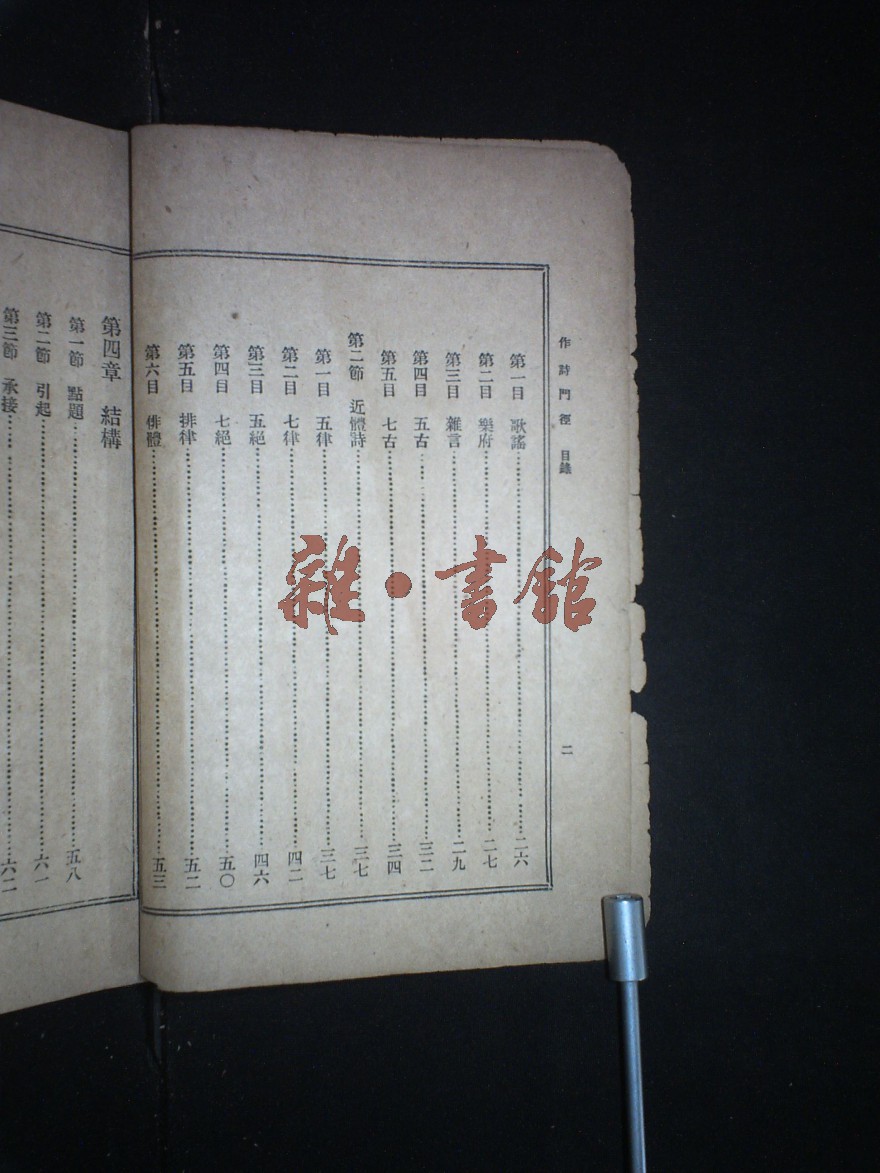 作詩門徑 目錄 二
第一目 歌謠……二六
第二目 樂府……二七
第三目 雜言……二九
第四目 五古……三二
第五目 七古……三四
第二節 近體詩……三七
第一目 五律……三七
第二目 七律……四二
第三目 五絕……四六
第四目 七絕……五〇
第五目 排律……五二
第六目 俳體……五三
第四章 結構
第一節 點題……五八
第二節 引起……六一
第三節 承接……六二
雜·書館